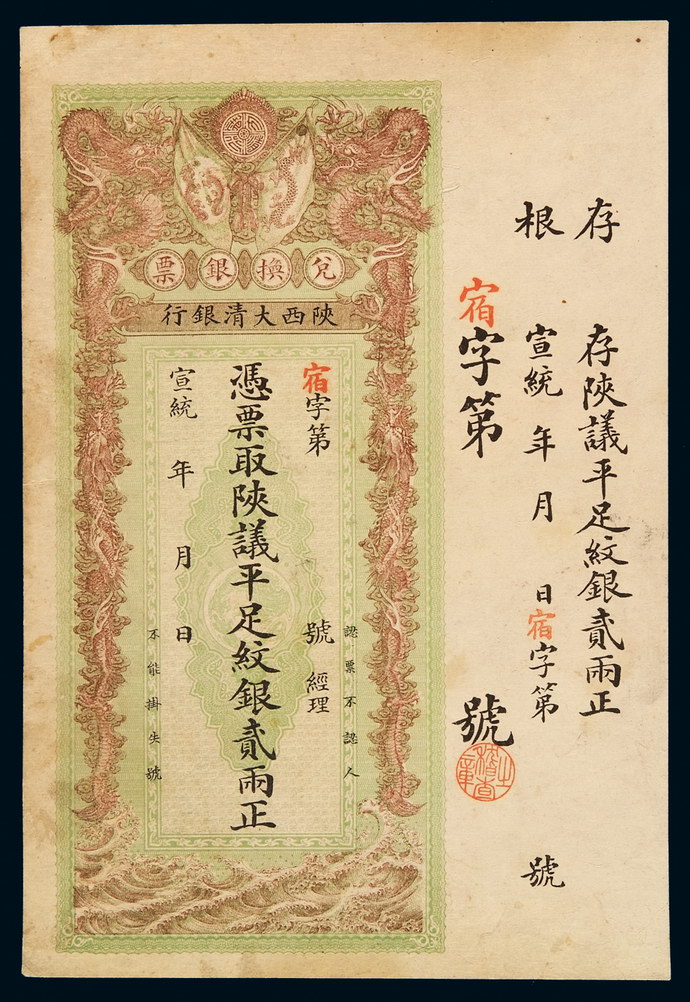 存根
存陝議平足紋銀貳兩正
宣統 年 月 日宿字第 號
宿字第 號
稽查之章
兌換銀票
陝西大清銀行
認票不認人
宿字第 號 經理
憑票取陝議平足紋銀貳兩正
宣統 年 月 日
不能掛失號